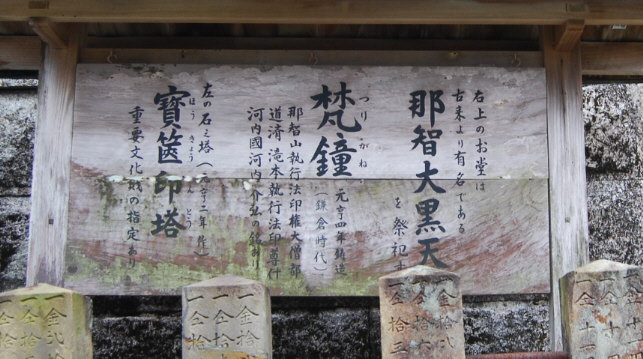 右上のお堂は
古来より有名である
那智大黒天
を祭祀す
梵鐘
つりがね
元亨四年鋳造
(鎌倉時代)
那智山執行法印権大僧都
道済滝本執行法印尊什
河内國河内介弘の銘あり
左の石之塔(元亨二年作)
寶篋印塔
ほうきょういんとう
重要文化財の指定あり